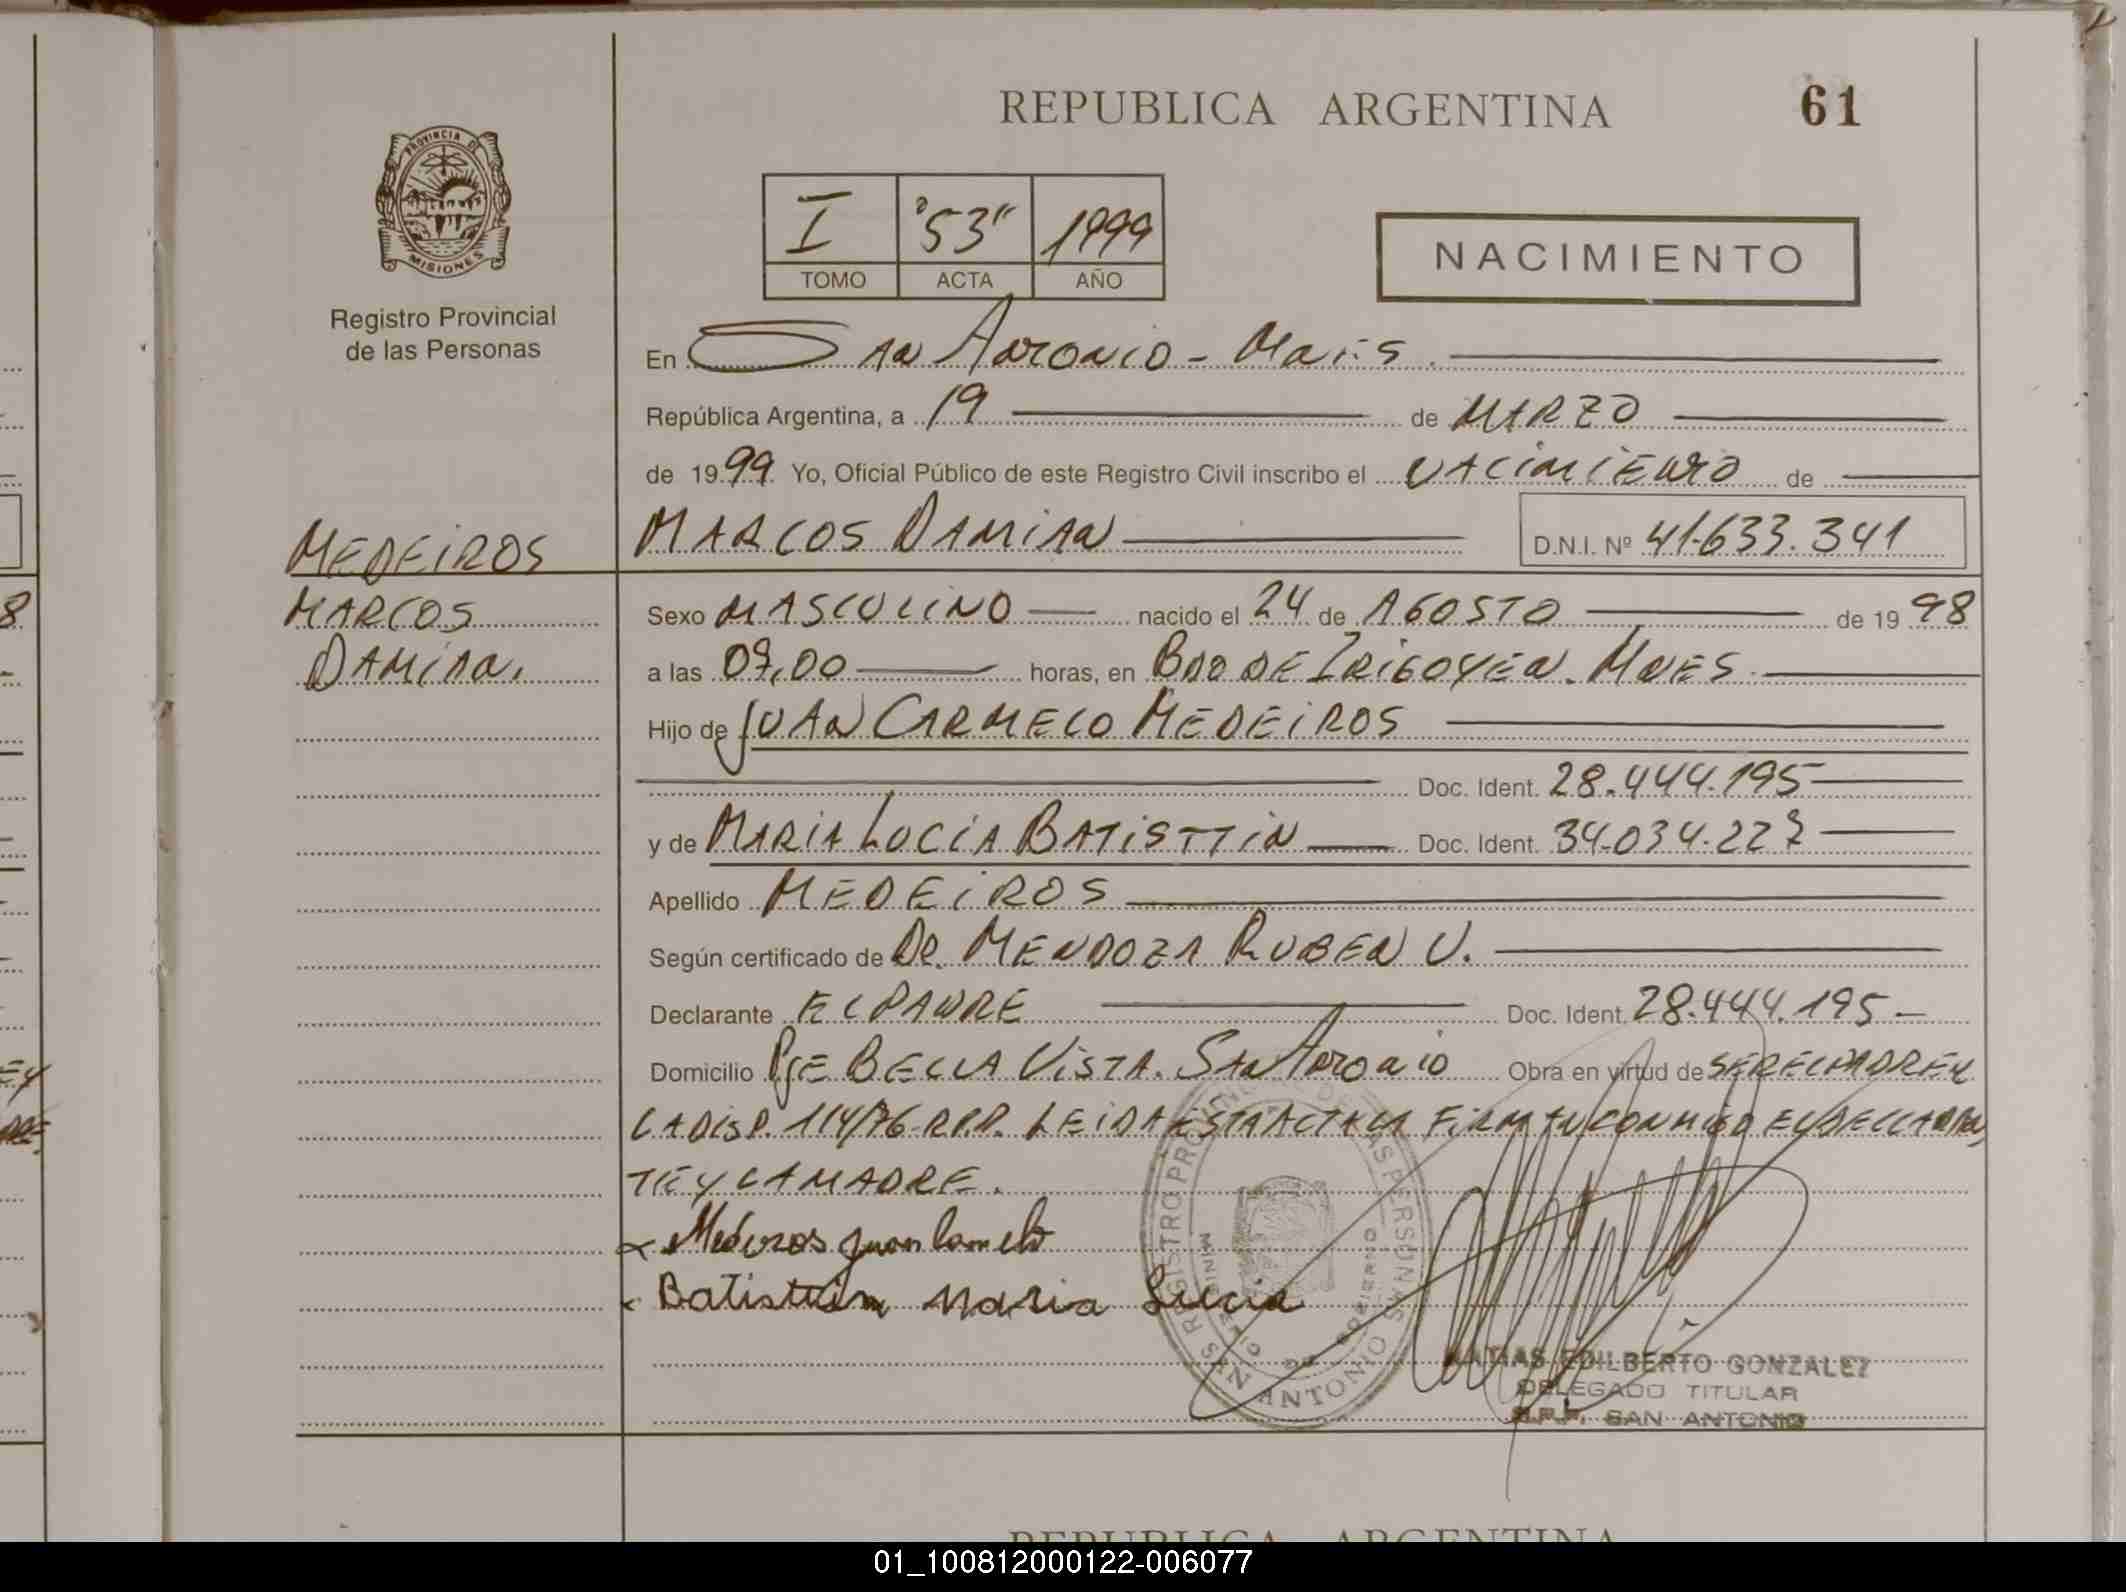 REPUBLICA ARGENTINA
61
PROVINCIA DE
MISIONES
Registro Provincial
de las Personas
I "53" 1999
TOMO ACTA AÑO
NACIMIENTO
En SAN ANTONIO - Mnes.
República Argentina, a 19 de MARZO
de 1999 Yo, Oficial Público de este Registro Civil inscribo el NACIMIENTO de
MARCOS DAMIAN D.N.I. Nº 41.633.341
MEDEIROS
MARCOS
DAMIAN.
Sexo MASCULINO nacido el 24 de AGOSTO de 1998
a las 07,00 horas, en BDO DE IRIGOYEN. MNES
Hijo de JUAN CARMELO MEDEIROS
Doc. Ident. 28.444.195
y de MARIA LUCIA BATISTTIN Doc. Ident. 34.034.227
Apellido MEDEIROS
Según certificado de DR. MENDOZA RUBEN V.
Declarante EL PADRE Doc. Ident. 28.444.195
Domicilio PJE BELLA VISTA. SAN ANTONIO Obra en virtud de SER EL PADRE Y
LA DISP. 114/76-R.P.P. LEIDA ESTA ACTA LA FIRMAN CONMIGO EL DECLARAN
TE Y LA MADRE.
Medeiros Juan Carmelo
Batisttin Maria Lucia
REGISTRO PROVINCIAL DE LAS PERSONAS
MINISTERIO DE GOBIERNO
SAN ANTONIO
MATIAS EDILBERTO GONZALEZ
DELEGADO TITULAR
R.P.P. SAN ANTONIO
REPUBLICA ARGENTINA
01_100812000122-006077